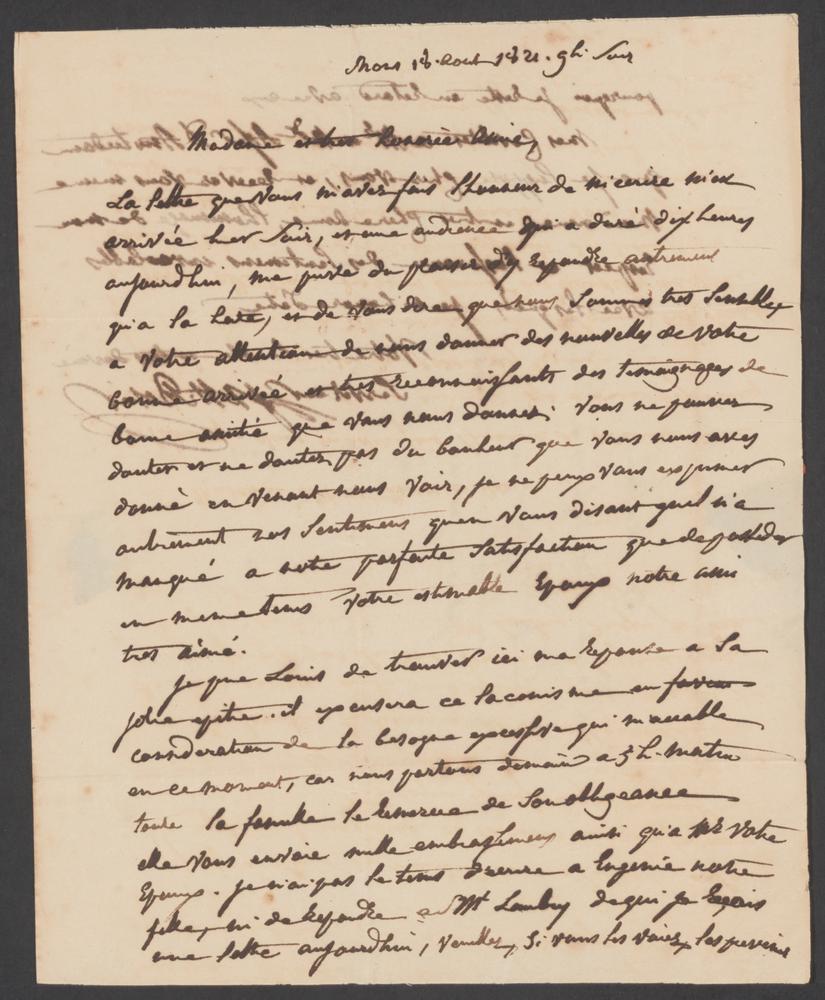 Mons 18 Aout 1821. 9h. Soir
Madame et tres honorée Amie,
La lettre que vous m'avez fais l'honneur de m'ecrire m'est
arrivée hier soir, et une audience qui a duré dix heures
aujourdhui, me prive du plaisir d'y repondre autrement
qu'a la hate, et de vous dire que nous sommes tres sensibles
a votre attention de nous donner des nouvelles de votre
bonne arrivée et tres reconnaissants des temoignages de
bonne amitié que vous nous donnez; vous ne pouvez
douter et ne doutez pas du bonheur que vous nous avez
donné en venant nous voir, je ne peux vous exprimer
autrement nos sentimens qu'en vous disant quel n'a
manqué a notre parfaite satisfaction que de posseder
en meme tems votre estimable Epoux notre ami
tres aimé.
je prie Louis de trouver ici ma reponse a sa
jolie epitre. il excusera ce laconisme en faveur
consideration de la besogne excessive qui m'accable
en ce moment, car nous partons demain a 5 h. matin
toute la famille le remercie de son obligeance
elle vous envoie mille embrassemens ainsi qu'a Mr votre
Epoux. je n'ai pas le tems d'ecrire a Eugenie notre
fille, ni de repondre a Mr de qui je reçois
une lettre aujourdhui, veuillez, si vous les voiez, les prevenir